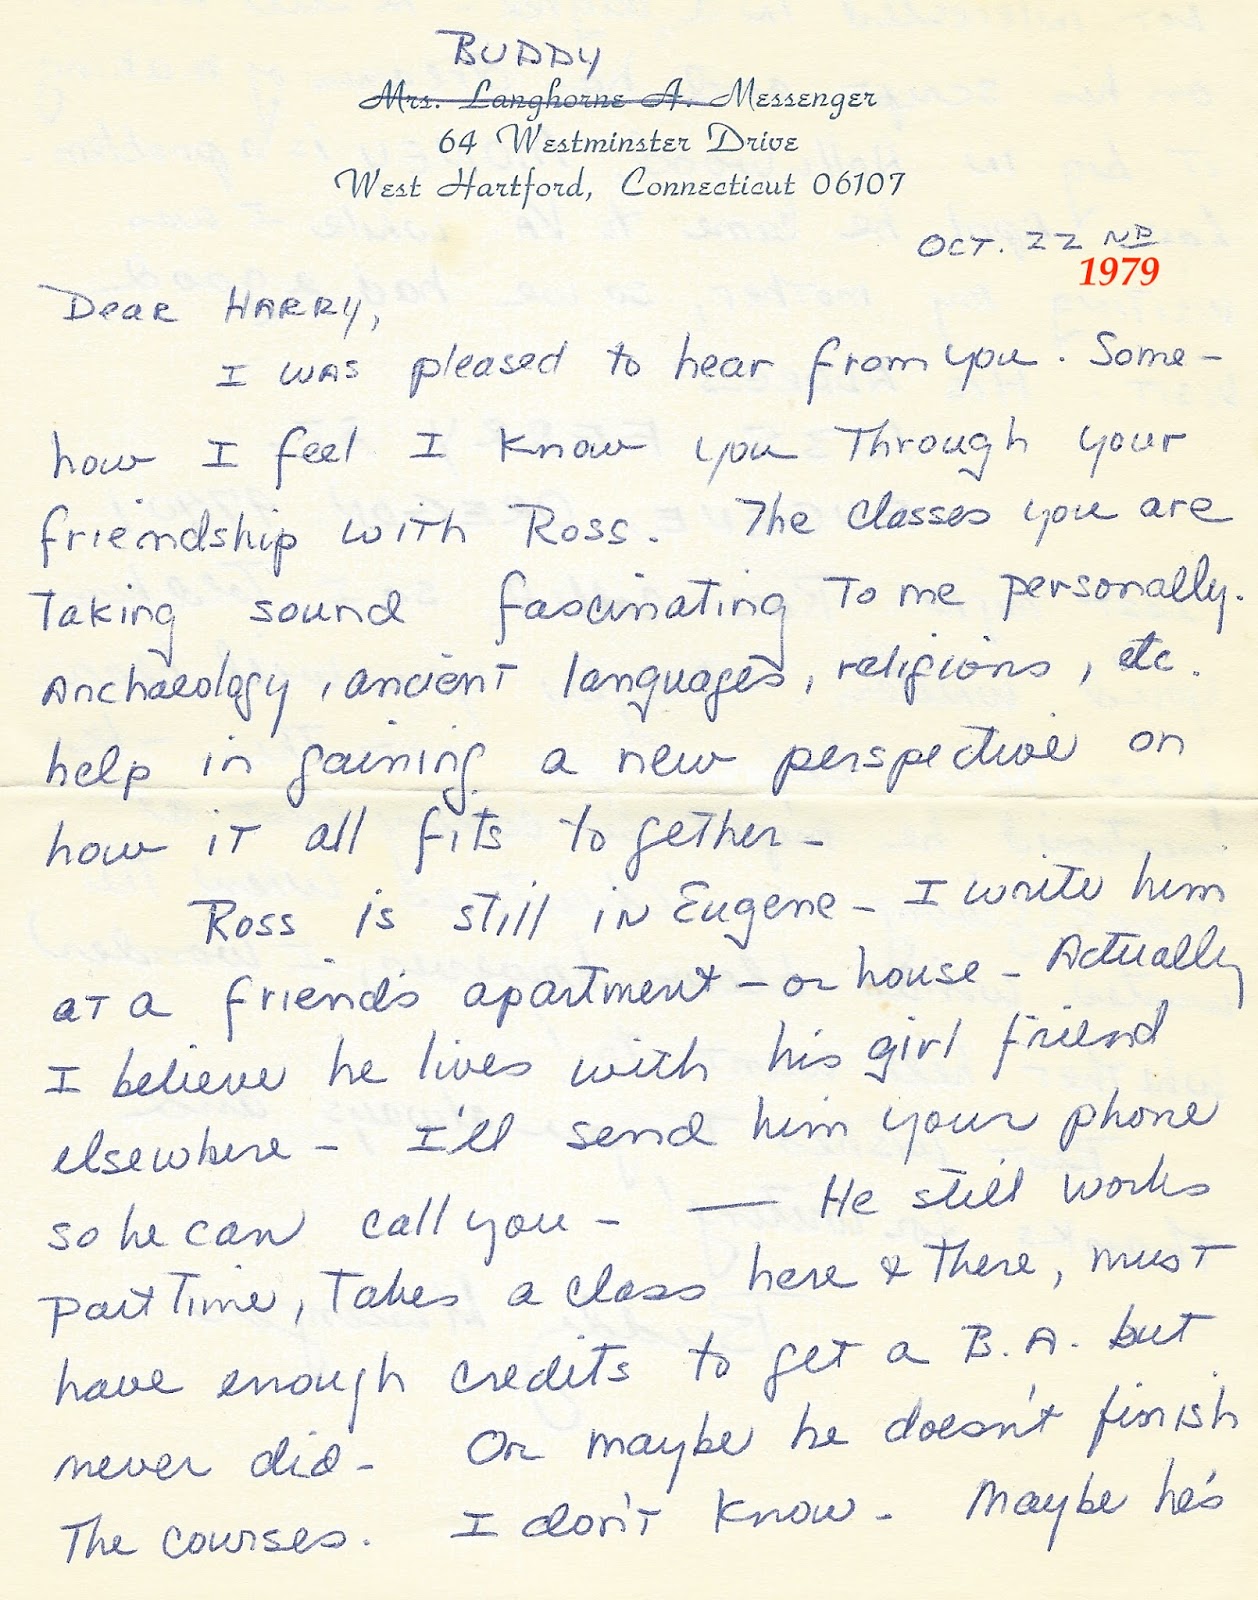 BUDDY
Mrs. Langhorne A. Messenger
64 Westminster Drive
West Hartford, Connecticut 06107
OCT. 22 ND
1979
Dear HARRY,
I was pleased to hear from you. Some-
how I feel I know you Through your
friendship with Ross. The classes you are
Taking sound fascinating To me personally.
Archaeology, ancient languages, religions, etc.
help in gaining a new perspective on
how it all fits to gether -
Ross is still in Eugene - I write him
at a friend's apartment - or house - Actually
I believe he lives with his girl friend
elsewhere - I'll send him your phone
so he can call you - — He still works
part Time, Takes a class here & There, must
have enough credits to get a B.A. but
never did - Or maybe he doesn't finish
The courses. I don't know - Maybe he's